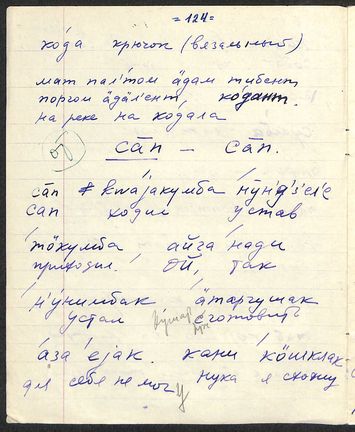 = 124 =
ко́да крючок (вязальный)
мат пал'том ӓдам тибент
поргом ӓдӓл'ент, ко́дант.
на реке на ко́дала
са̄п – са̄п.
са̄п ква́jакумба
сап ходил устав
тӧкумба айга нади
приходил. Ой, так
н'у́нымбак ӓтаргушак
устал сготовить
а́за е́jак. кани ко́шклак-
для себя не могу нука я схожу